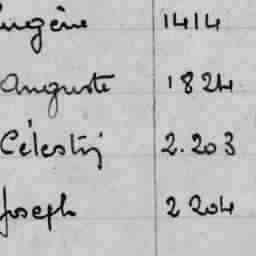 Eugène 1414
Auguste 1824
Célestin 2.203
Joseph 2204